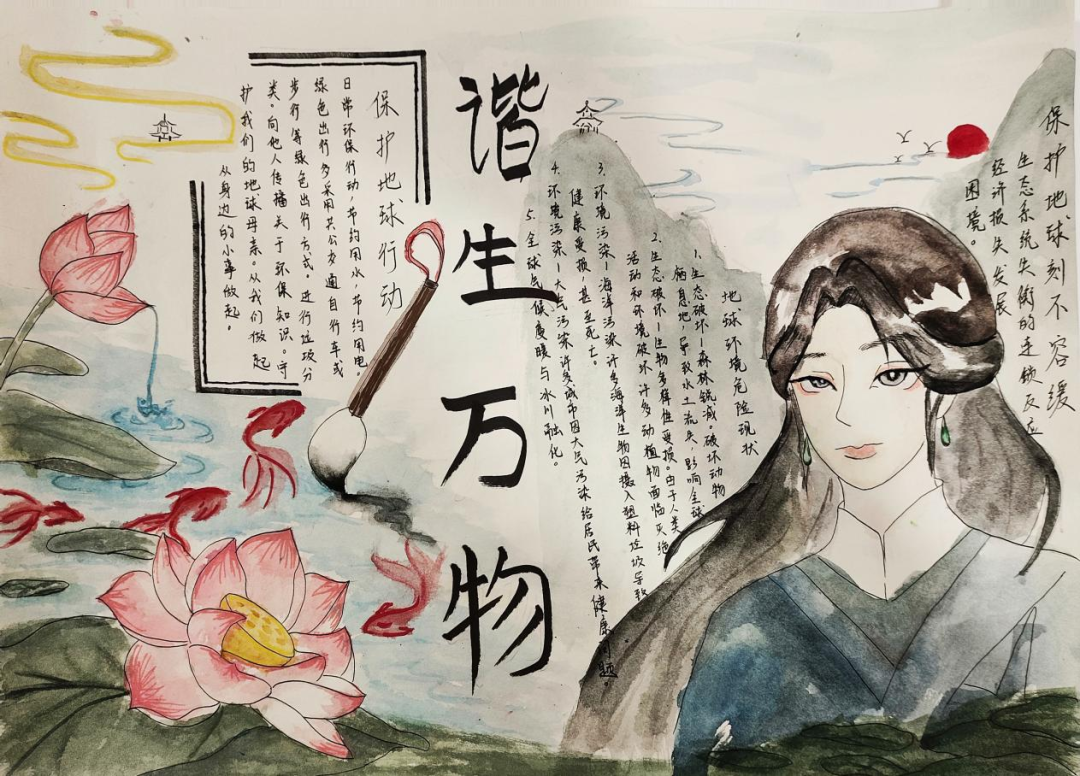 保护地球刻不容缓
生态系统失衡的连锁反应
经许损失发展
困境。
地球环境危险现状
1、生态破坏—森林锐减。破坏动物
栖息地，导致水土流失，影响全球
2、生态破坏—生物多样性受损。由于人类
活动和环境破坏许多动植物面临灭绝
3、环境污染—海洋污染许多海洋生物因摄入塑料垃圾导致
健康受损甚至死亡。
4、环境污染—大气污染许多城市因大气污染给居民带来健康问题。
5、全球气候度暖与冰川融化。
谐生万物
保护地球行动
日常环保行动，节约用水，节约用电
绿色出行多采用共公交通自行车或
步行等绿色出行方式。进行垃圾分
类。向他人传播关于环保知识。守
护我们的地球母亲。从我们做起
从身边的小事做起。